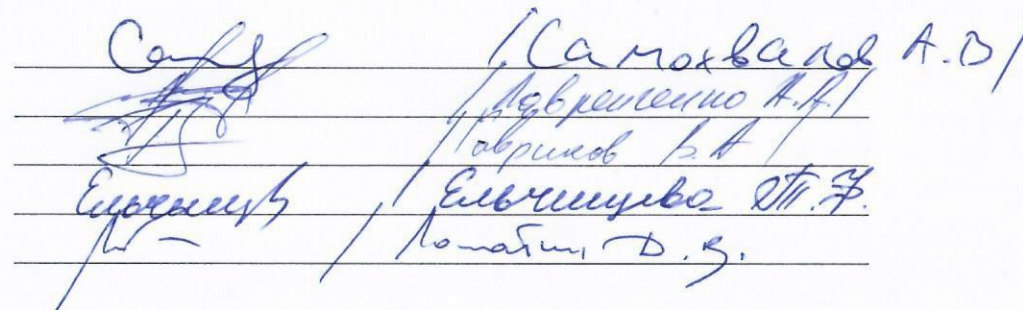 /Самохвалов А.В/
/Лавриненко А.А./
/Гавриков В.А/
Ельчищев Ельчищева Т.Ф.
/Лопатин Д.В.